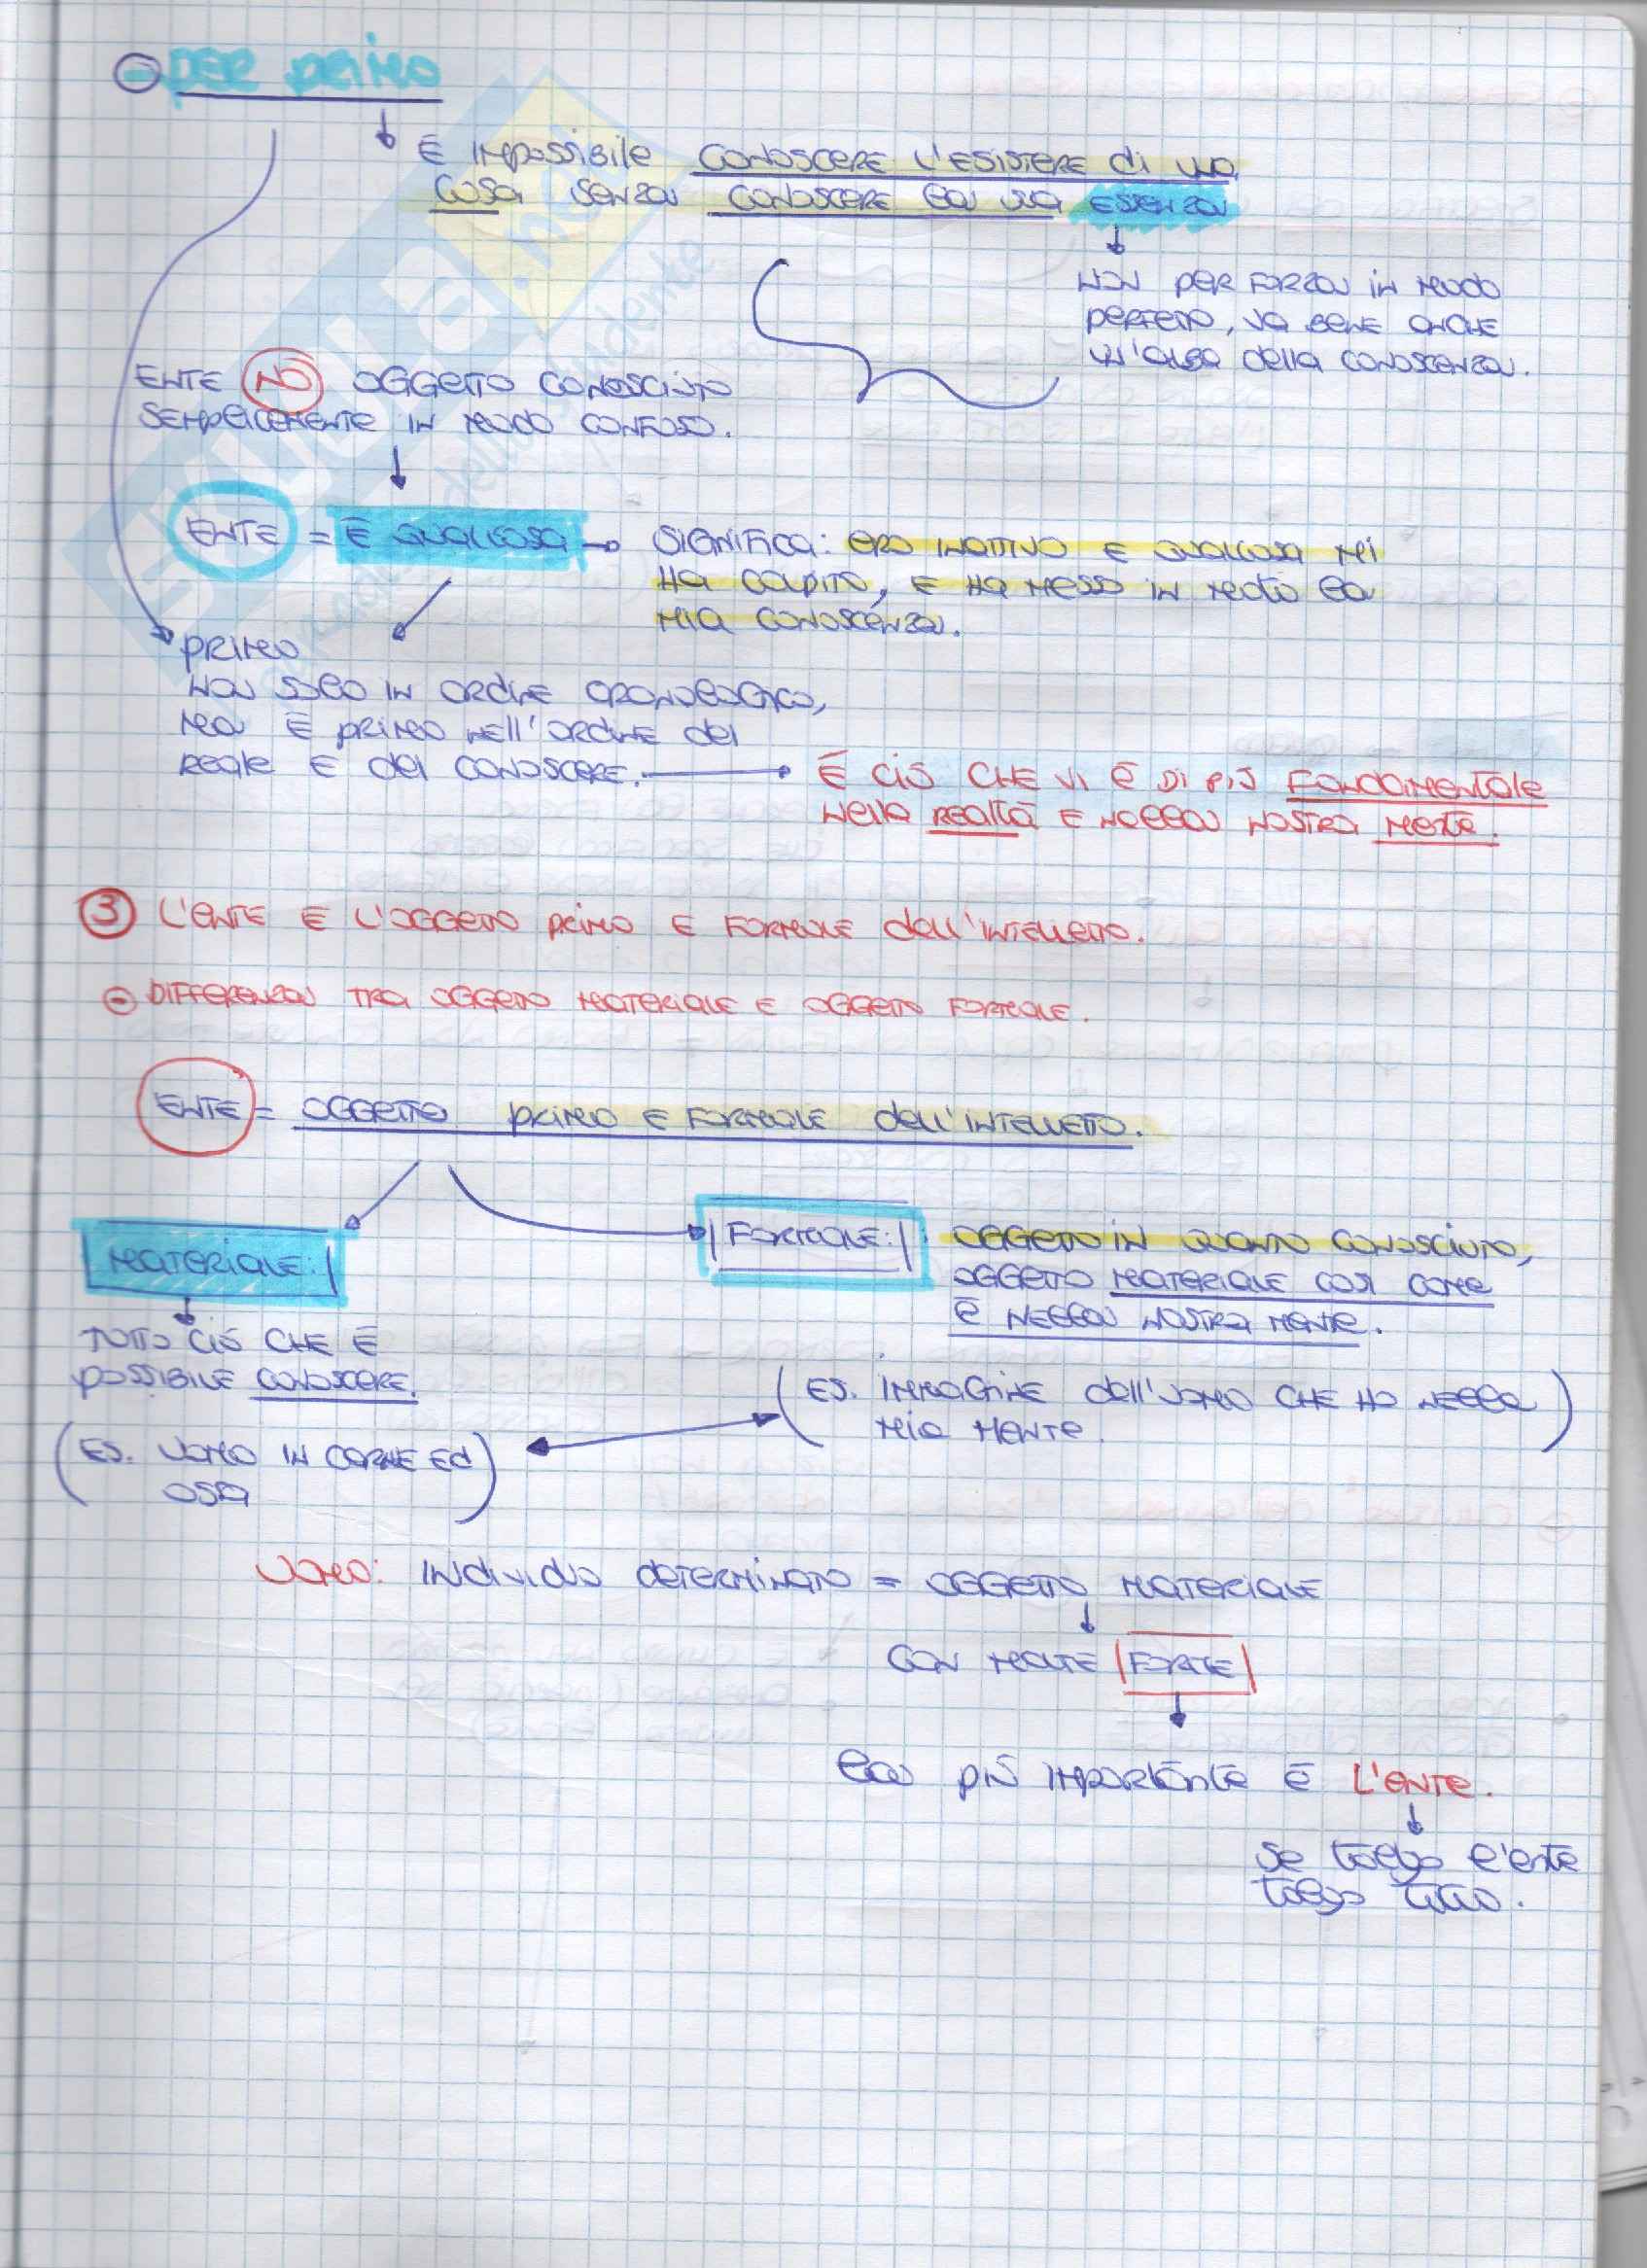 PER PRIMO
È IMPOSSIBILE CONOSCERE L'ESISTERE di UNA
COSA SENZA CONOSCERE la SUA ESSENZA
NON PER FORZA IN MODO
PERFETTO, VA BENE ANCHE
UN'ALBA della CONOSCENZA.
ENTE NO OGGETTO CONOSCIUTO
SEMPLICEMENTE IN MODO CONFUSO.
ENTE = È QUALCOSA → SIGNIFICA: ERO INATTIVO E QUALCOSA MI
HA COLPITO, E HA MESSO IN MOTO la
MIA CONOSCENZA.
PRIMO
NON SOLO IN ORDINE CRONOLOGICO,
MA È PRIMO NELL'ORDINE del
REALE E del CONOSCERE. → È CIÒ CHE VI È DI PIÙ FONDAMENTALE
NELLA REALTÀ E NELLA NOSTRA MENTE.
3 L'ENTE È L'OGGETTO PRIMO E FORMALE dell'INTELLETTO.
DIFFERENZA TRA OGGETTO MATERIALE E OGGETTO FORMALE.
ENTE = OGGETTO PRIMO E FORMALE dell'INTELLETTO.
MATERIALE:
TUTTO CIÒ CHE È
POSSIBILE CONOSCERE.
(ES. UOMO IN CARNE ED
OSSA)
FORMALE: OGGETTO IN QUANTO CONOSCIUTO,
OGGETTO MATERIALE COSÌ COME
È NELLA NOSTRA MENTE.
(ES. IMMAGINE dell'UOMO CHE HO NELLA
MIA MENTE.)
UOMO: INDIVIDUO DETERMINATO = OGGETTO MATERIALE
CON MOLTE FORME
la PIÙ IMPORTANTE È L'ENTE.
Se tolgo l'ente
tolgo tutto.